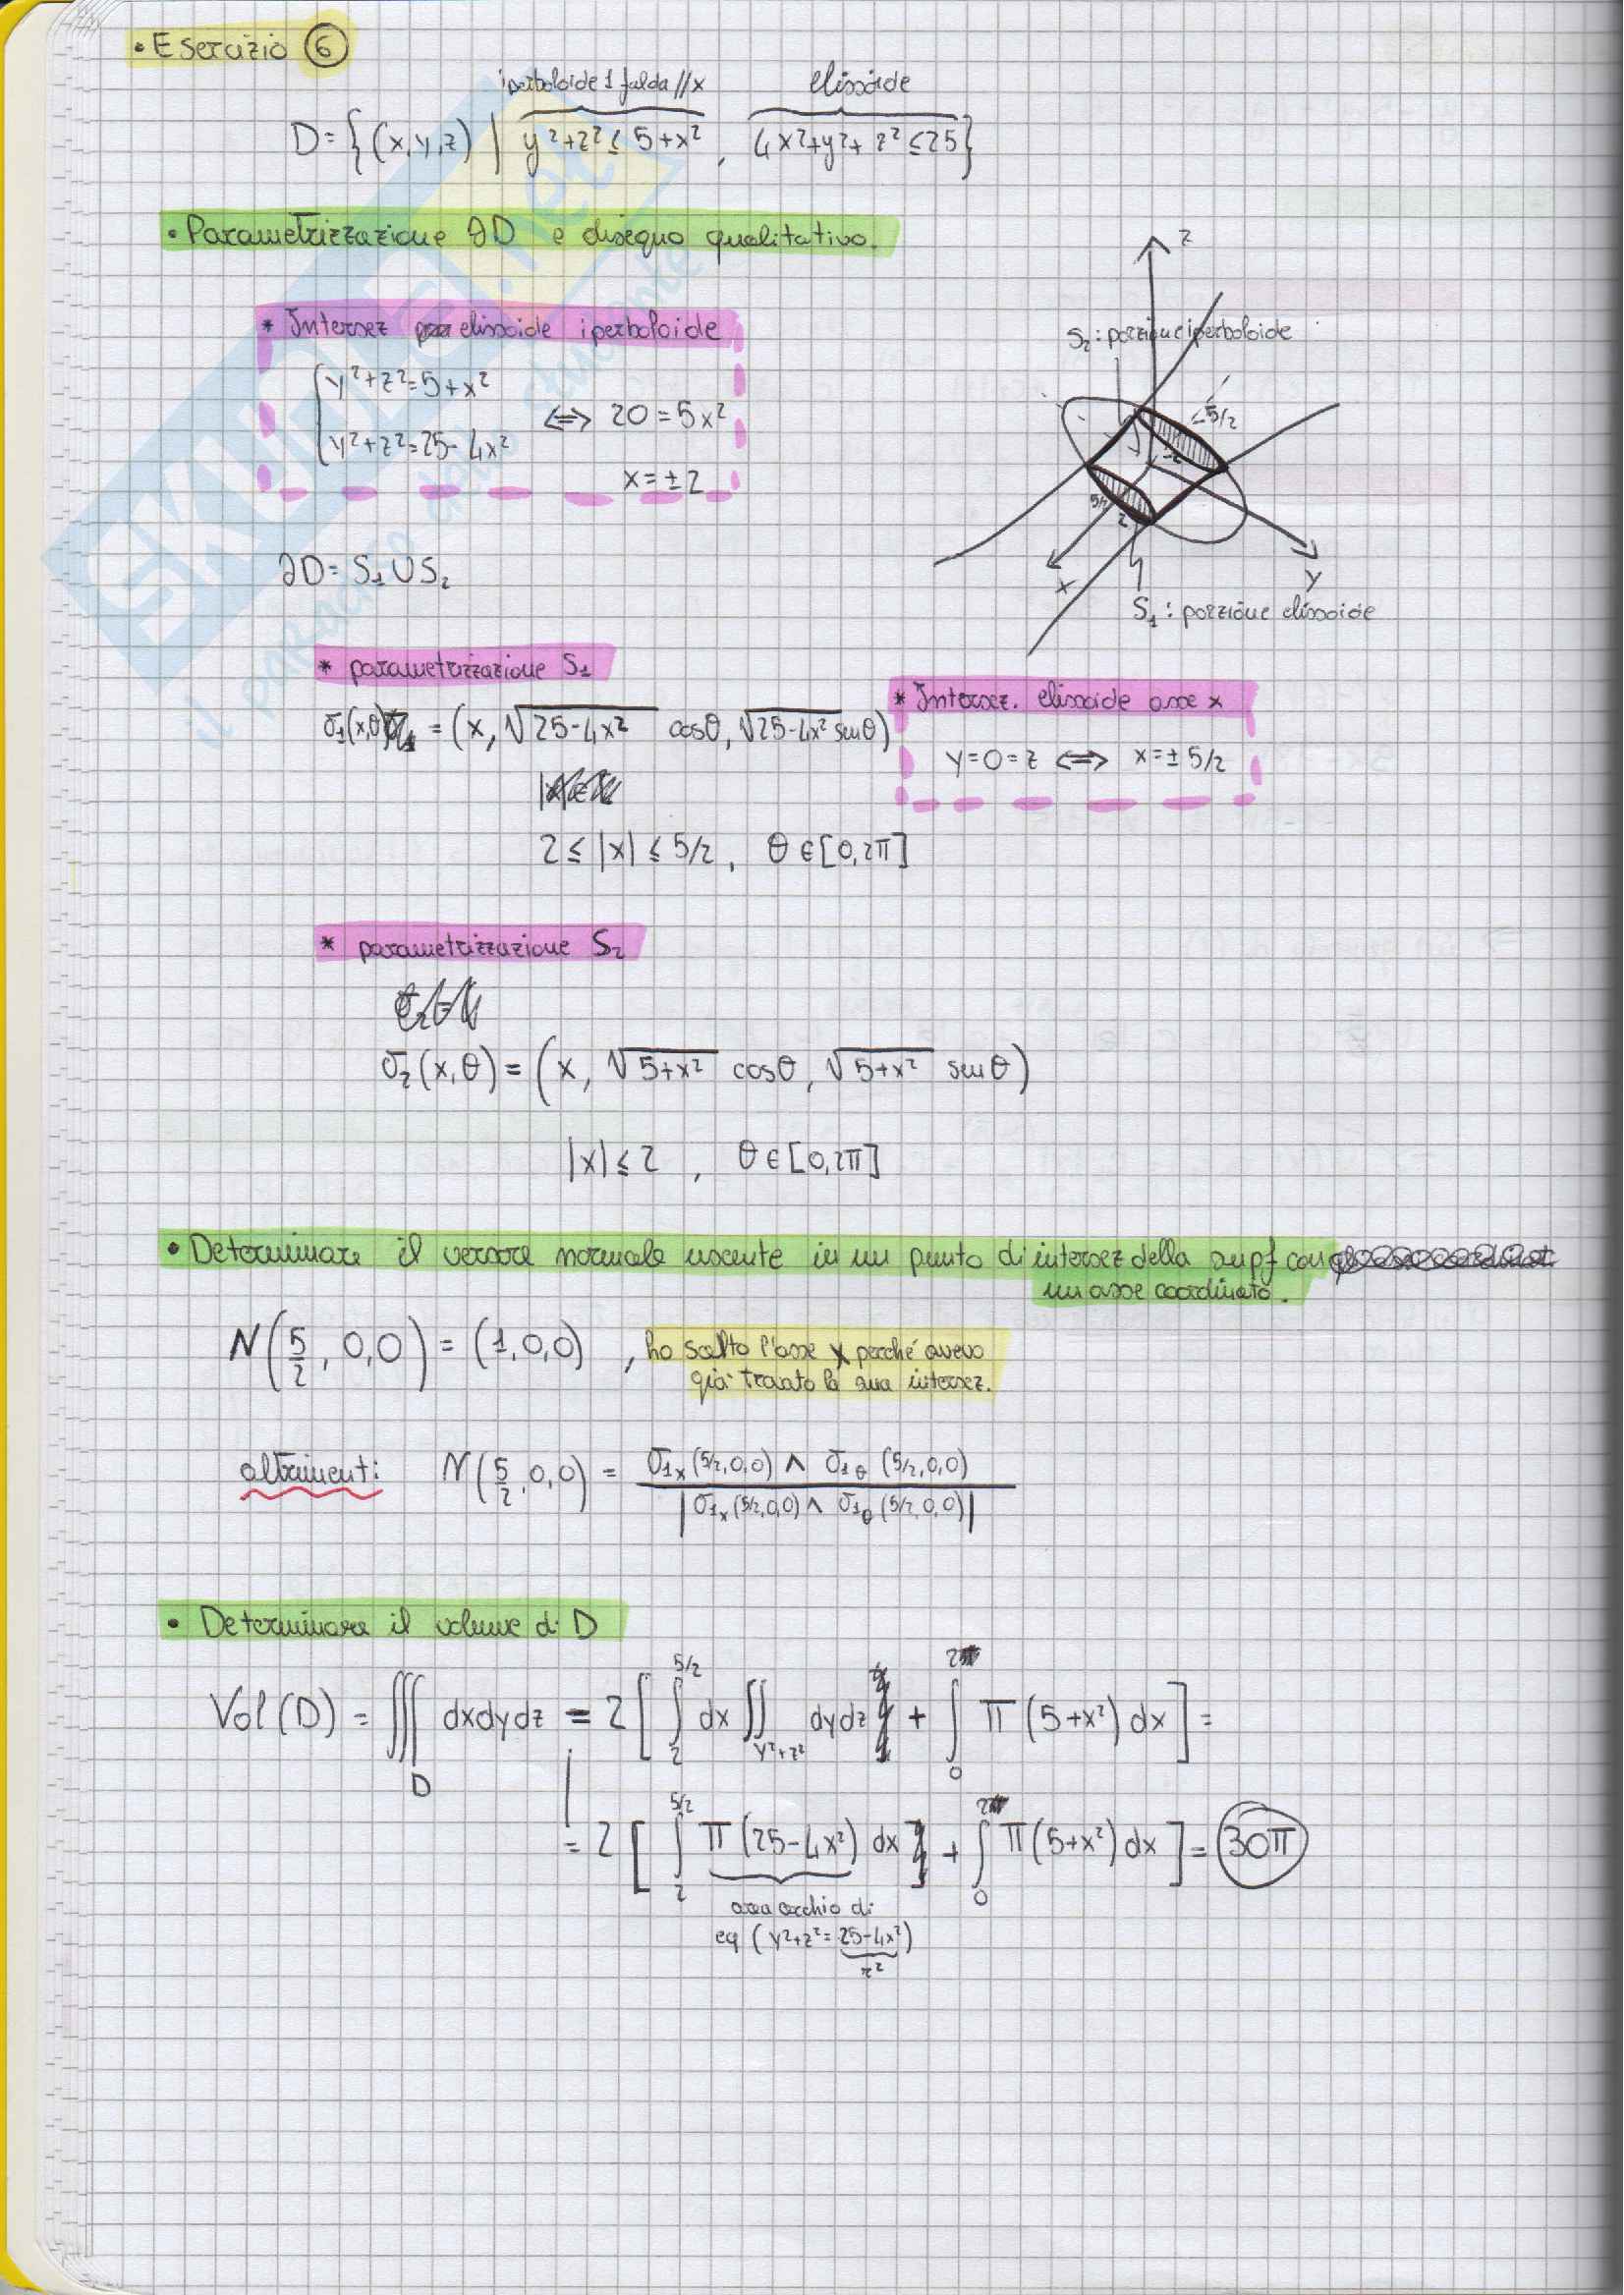 • Esercizio 6
iperboloide 1 falda // x
elissoide
D = { (x,y,z) | y²+z² ≤ 5+x² , 4x²+y²+z² ≤ 25 }
• Parametrizzazione ∂D e disegno qualitativo.
* Intersez elissoide iperboloide
y²+z²=5+x²
y²+z²=25-4x²
⟺ 20 = 5x²
x = ±2
z
S₂: porzione iperboloide
-5/2
-2
5/2
2
x
y
S₁: porzione elissoide
∂D = S₁ ∪ S₂
* parametrizzazione S₁
σ₁(x,θ) = (x, √25-4x² cosθ, √25-4x² senθ)
* Intersez. elissoide asse x
y=0=z ⟺ x=±5/2
2 ≤ |x| ≤ 5/2 , θ ∈ [0,2π]
* parametrizzazione S₂
σ₂(x,θ) = (x, √5+x² cosθ, √5+x² senθ)
|x| ≤ 2 , θ ∈ [0,2π]
• Determinare il versore normale uscente in un punto di intersez della supf con
un asse coordinato.
N(5/2, 0,0) = (1,0,0) , ho scelto l'asse x perché avevo
già trovato la sua intersez.
altrimenti N(5/2,0,0) = σ₁ₓ(5/2,0,0) ∧ σ₁θ(5/2,0,0)
|σ₁ₓ(5/2,0,0) ∧ σ₁θ(5/2,0,0)|
• Determinare il volume di D
Vol(D) = ∭_D dxdydz = 2[ ∫₂^5/2 dx ∬_y²+z² dydz + ∫₀² π(5+x²) dx ] =
= 2[ ∫₂^5/2 π(25-4x²) dx + ∫₀² π(5+x²) dx ] = 30π
area cerchio di
eq (y²+z² = 25-4x²)
r²
SKUOLA.net